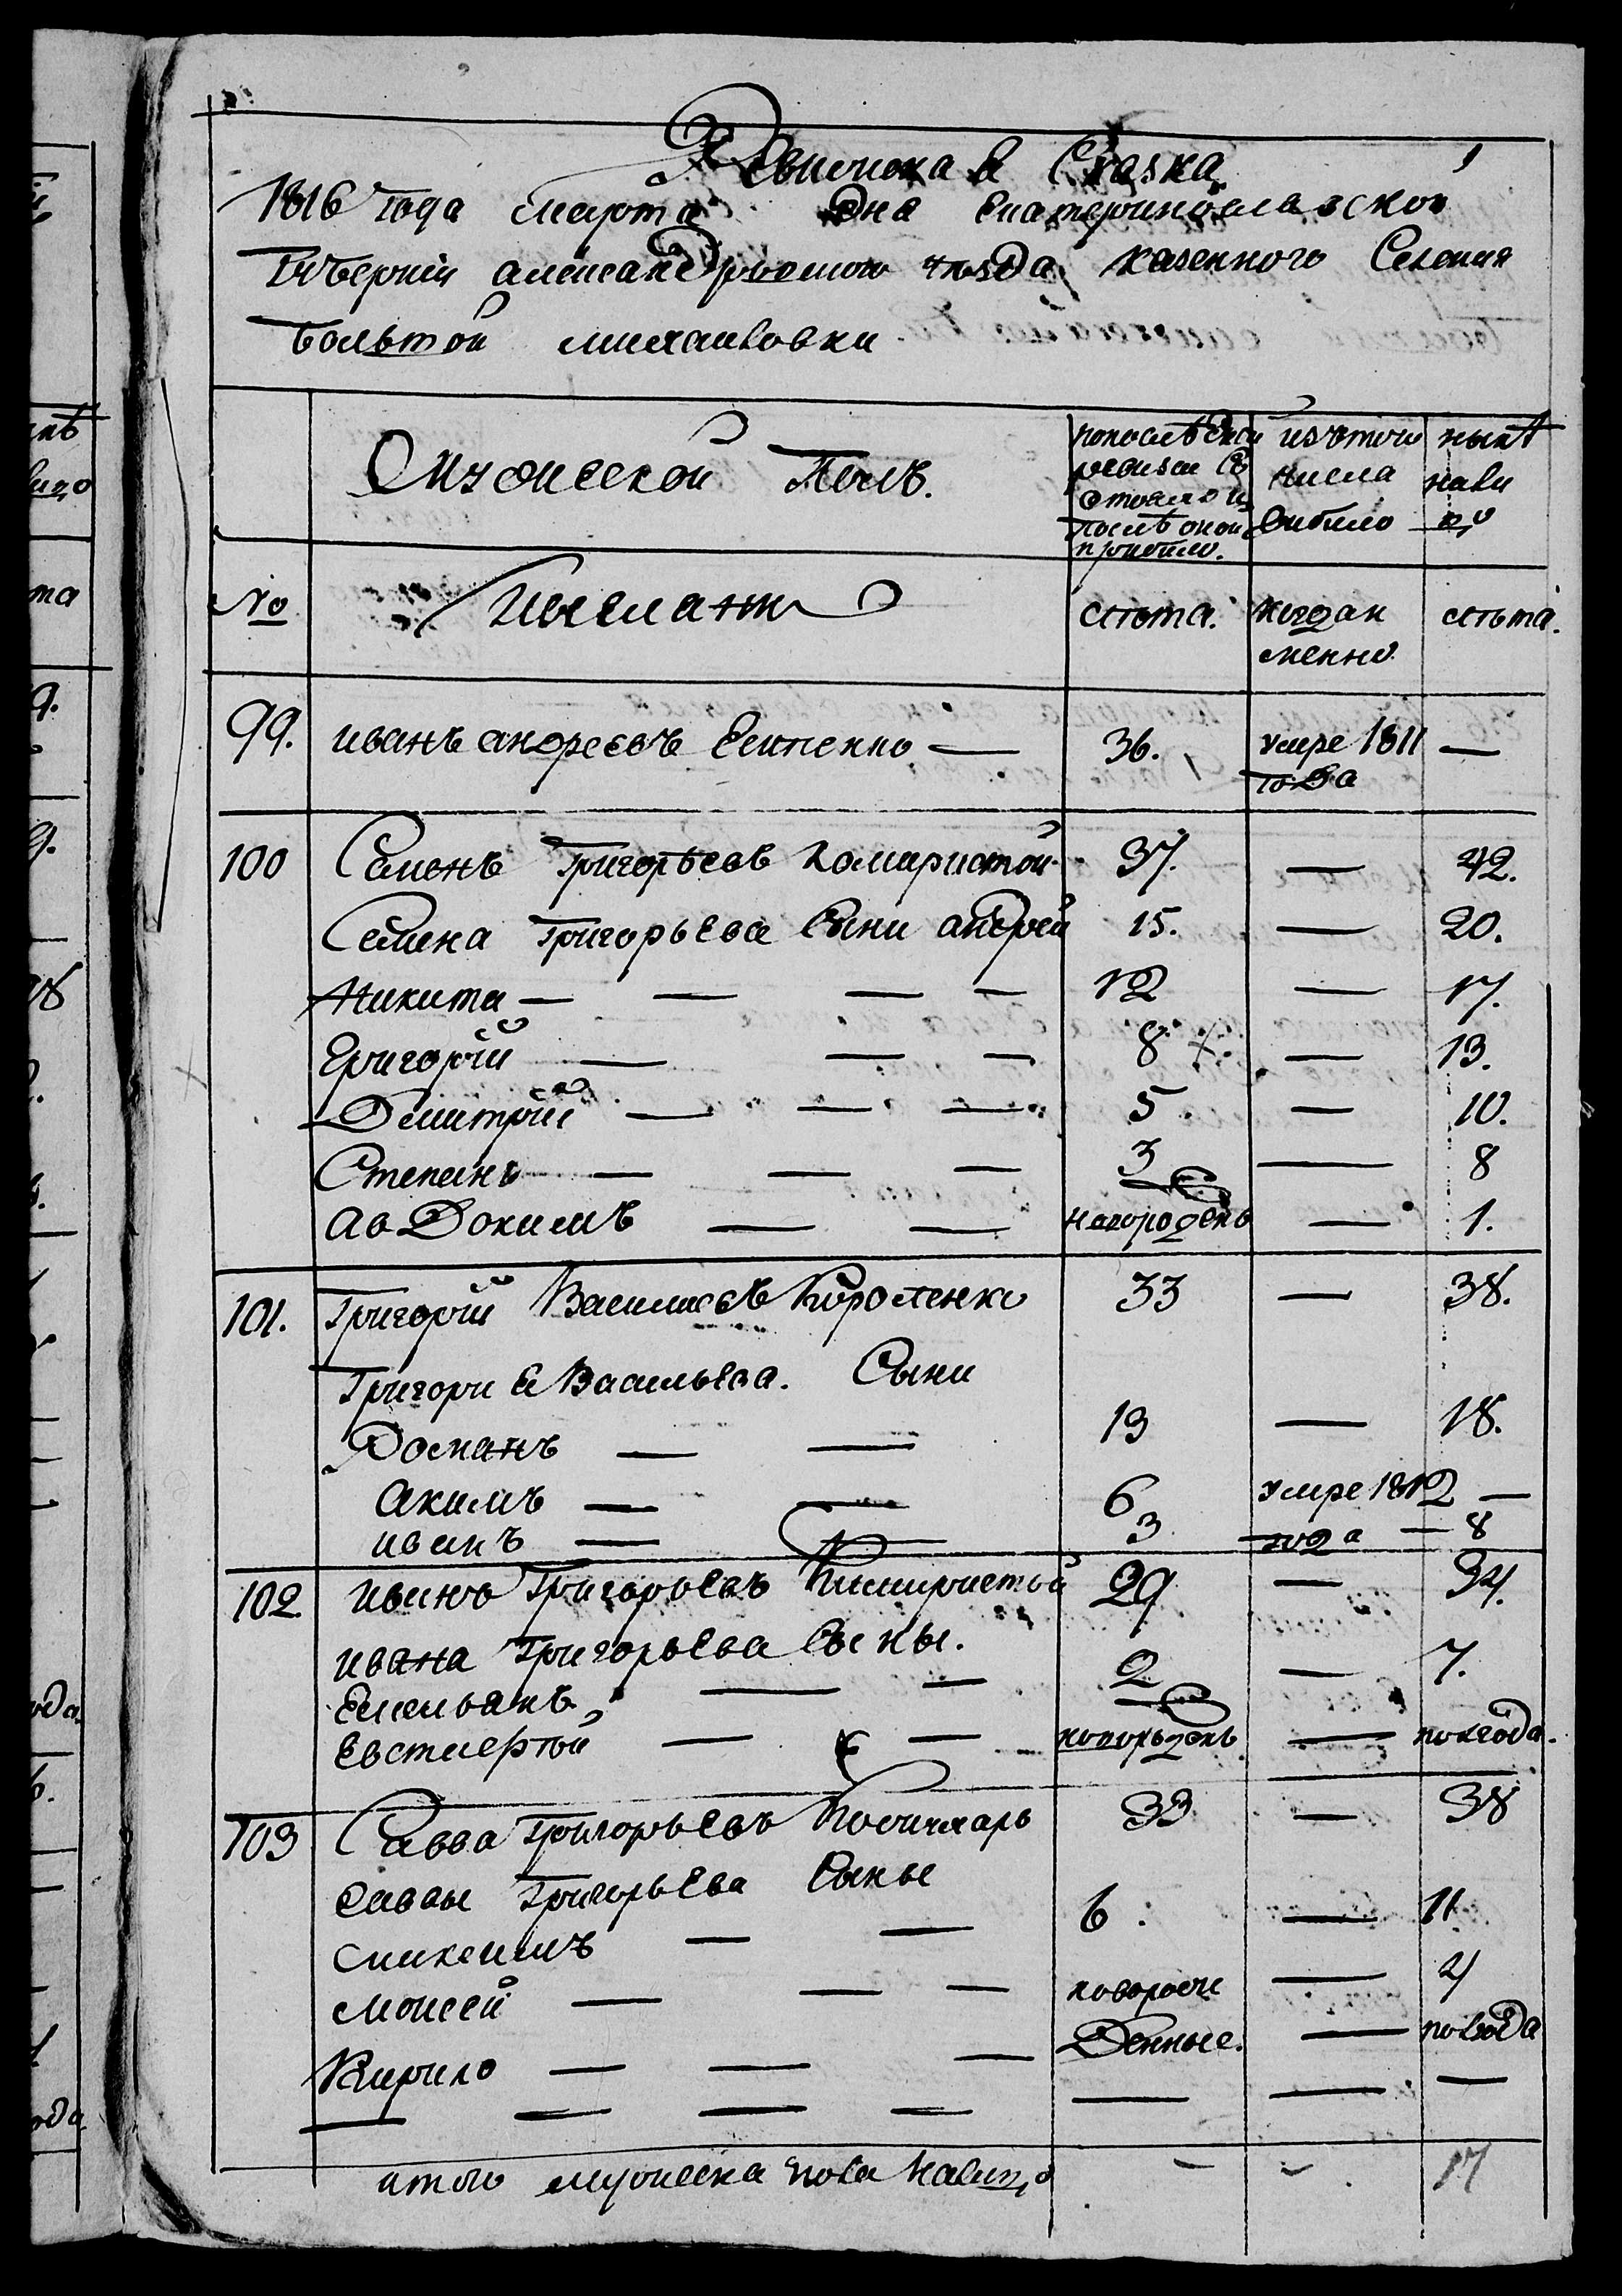 Ревижска в Сказка
1816 года марта дня екатеринославской
Губернiи александрiйского уезда казенного Селения
большой михаиловки
Мужескои Полъ.
по последнеи ревизiи Состояло и после онои прибыло.
изътого числа выбыло
ныне на лицо
№
Именанъ
лета.
когда именно
лета.
99. иванъ андреевъ 36. умре 1811 года —
100 Семенъ Григорьевъ Комиристой 37. — 42.
Семена Григорьева Сыни андрей 15. — 20.
Никита — — — — 12 — 17.
Григорiй — — — 8 — 13.
Дмитрiй — — — 5 — 10.
Степанъ — — — 3 — 8
АвДокимъ — — новорожденъ — 1.
101. Григорiй Василиевъ Короленко 33 — 38.
Григорiе Васильева. Сыни
Романъ — — 13 — 18.
Акимъ — — 6 умре 1812 года —
иванъ — — 3 — 8
102 иванъ Григорьевъ Кимиристой 29 — 34.
ивана Григорьева Сыны.
Емельянъ — — 2 — 7.
Евстиефiй — — новорожденъ — полгода.
103 Савва Григорьевъ 33 — 38
Саввы Григорьева Сыны
— — 6 — 11
Моисей — — — новорож — 4
Кирило — — — Денные. — полгода
— — — — — — —
итого мужеска пола налицо — — 17